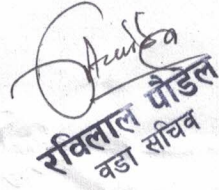 रविलाल पौडेल
वडा सचिव